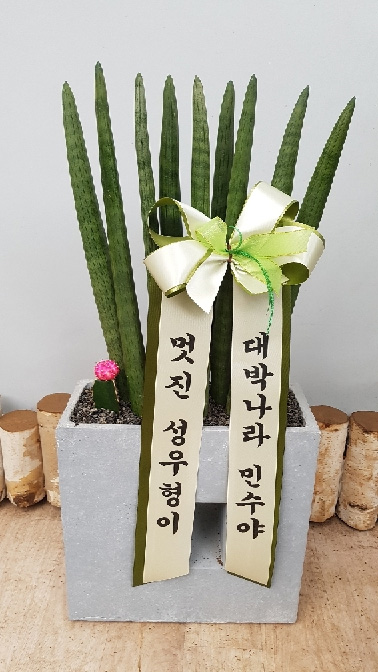 대박나라 민수야
멋진 성우형이